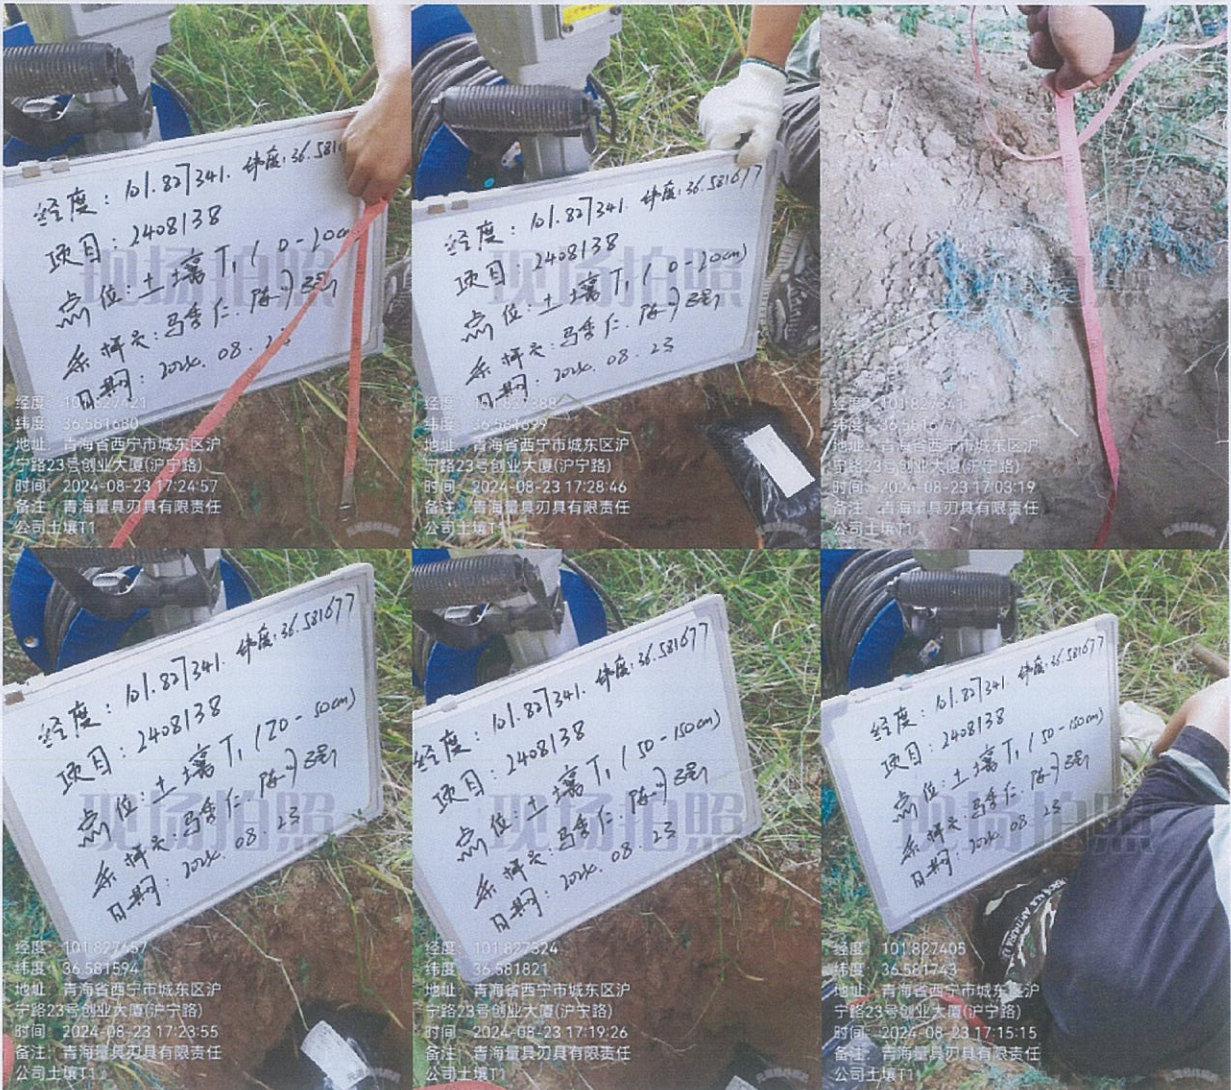 经度：101.827341. 纬度：36.581
项目：2408138
点位：土壤T1（0-20cm
采样员：马秀仁.陈
日期：2024.08.2
现场拍照
经度：101.827421
纬度：36.581680
地址：青海省西宁市城东区沪
宁路23号创业大厦(沪宁路)
时间：2024-08-23 17:24:57
备注：青海量具刃具有限责任
公司土壤T1
经度：101.827341. 纬度：36.581677
项目：2408138
点位：土壤T1（0-20cm）
采样员：马秀仁.陈
日期：2024.08.23
现场拍照
经度：
纬度：36.581699
地址：青海省西宁市城东区沪
宁路23号创业大厦(沪宁路)
时间：2024-08-23 17:28:46
备注：青海量具刃具有限责任
公司土壤T1
现场拍照
经度：
纬度：
地址：青海省西宁市城东区沪
宁路23号创业大厦(沪宁路)
时间：2024-08-23 17:03:19
备注：青海量具刃具有限责任
公司土壤T1
经度：101.827341. 纬度：36.581677
项目：2408138
点位：土壤T1（20-50cm）
采样员：马秀仁.陈
日期：2024.08.23
现场拍照
经度：101.827657
纬度：36.581594
地址：青海省西宁市城东区沪
宁路23号创业大厦(沪宁路)
时间：2024-08-23 17:23:55
备注：青海量具刃具有限责任
公司土壤T1
经度：101.827341. 纬度：36.581677
项目：2408138
点位：土壤T1（50-150cm）
采样员：马秀仁.陈
日期：2024.08.23
现场拍照
经度：101.827324
纬度：36.581821
地址：青海省西宁市城东区沪
宁路23号创业大厦(沪宁路)
时间：2024-08-23 17:19:26
备注：青海量具刃具有限责任
公司土壤T1
经度：101.827341. 纬度：36.581677
项目：2408138
点位：土壤T1（50-150cm）
采样员：马秀仁.陈
日期：2024.08.23
现场拍照
经度：101.827405
纬度：36.581743
地址：青海省西宁市城东区沪
宁路23号创业大厦(沪宁路)
时间：2024-08-23 17:15:15
备注：青海量具刃具有限责任
公司土壤T1